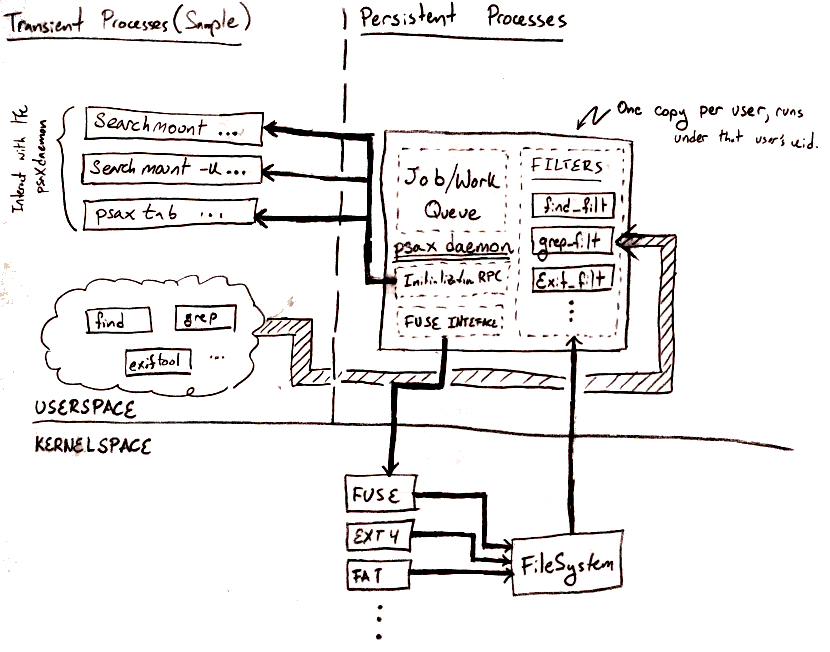 Transient Processes (Sample)
Persistent Processes
Interact with the
psax daemon
Searchmount ...
Searchmount -u ...
psax tab ...
One copy per user, runs
under that user's uid.
Job/Work
Queue
psax daemon
Initialization RPC
FUSE INTEFACE
FILTERS
find_filt
grep_filt
Exif_filt
find
grep
exiftool
...
USERSPACE
KERNELSPACE
FUSE
EXT4
FAT
FileSystem